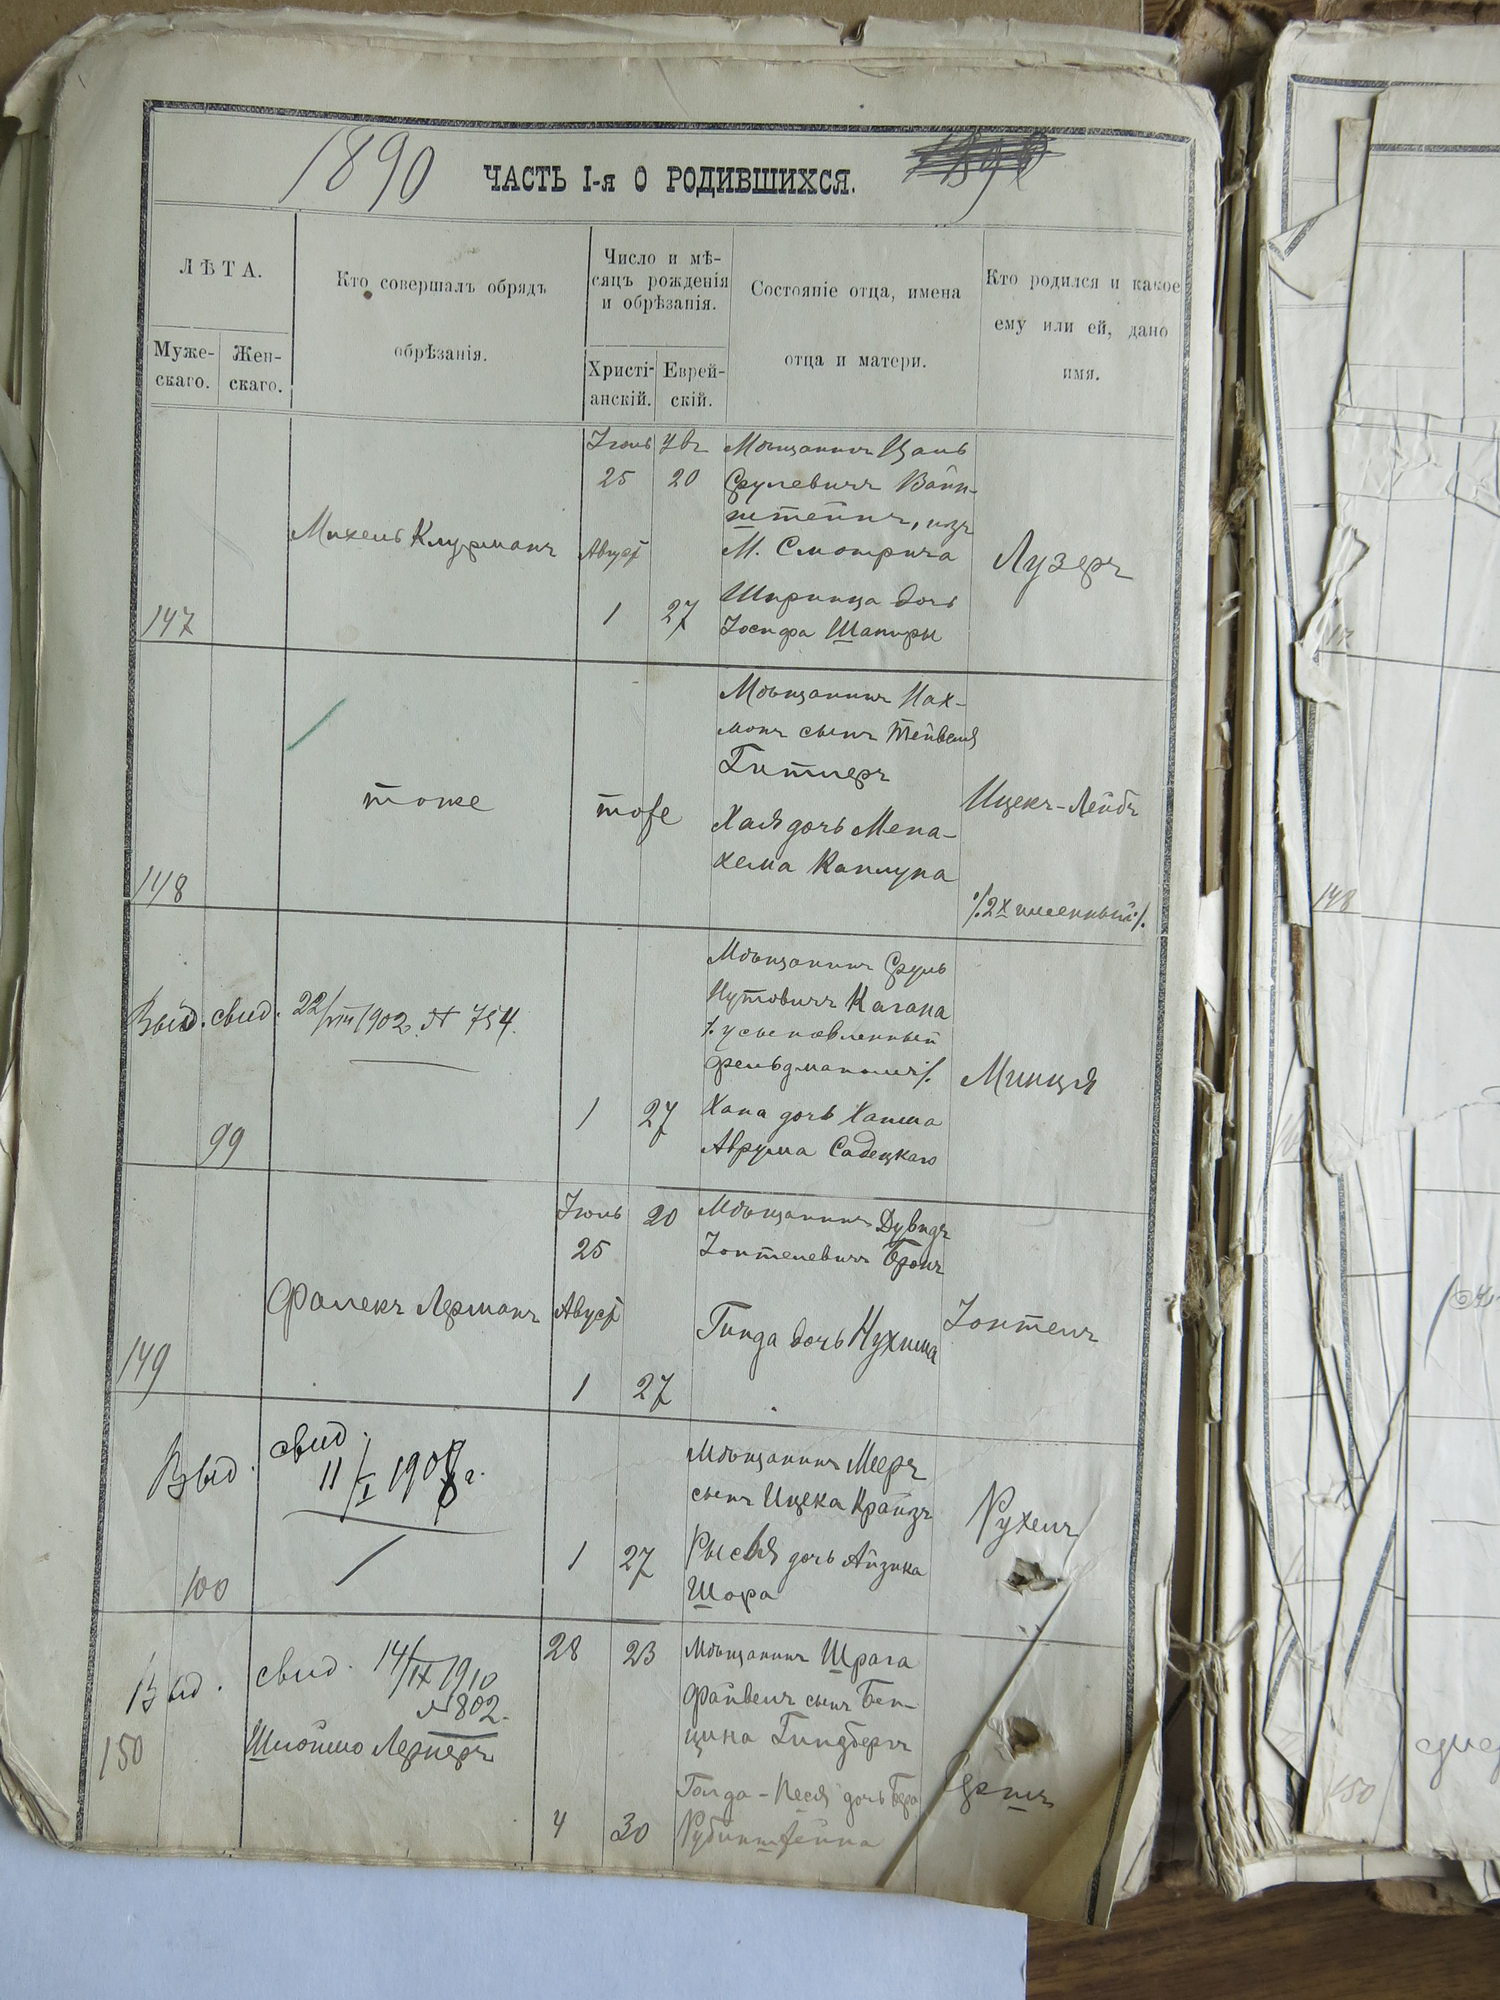 1890
ЧАСТЬ I-я О РОДИВШИХСЯ.
ЛѢТА.
Муже-
скаго.
Жен-
скаго.
Кто совершалъ обрядъ
обрѣзанія.
Число и мѣ-
сяцъ рожденія
и обрѣзанія.
Христі-
анскій.
Еврей-
скій.
Состояніе отца, имена
отца и матери.
Кто родился и какое
ему или ей, дано
имя.
147
Михель Клурманъ
Іюль
25 20
Август
1 27
Мѣщанинъ
Срулевичъ Вайн-
штейнъ, изъ
М. Смотрича
дочь
Іосифа Шапиры
Лузеръ
148
тоже
тоже
Мѣщанинъ Нах-
манъ сынъ Тейвеля
Гитлеръ
Хая дочь Мена-
хема Каплуна
Ицекъ-Лейбъ
/.2х именный/.
Выд. свид. 22/VIII 1902. № 754.
99
1 27
Мѣщанинъ Сруль
Нутовичъ Кагана
/. усыновленный
Фельдманомъ/.
Хана дочь Хаима
Аврума Садецкаго
Минця
149
Фалекъ Лерманъ
Іюль 20
25
Август
1 27
Мѣщанинъ Дувидъ
Іонтелевичъ Бронъ
Гинда дочь Нухима
Іонтель
Выд. свид.
11/I 1908 г.
100
1 27
Мѣщанинъ Мееръ
сынъ Ицека Крайзъ
Рыся дочь Айзика
Шора
Рухель
Выд. свид. 14/IX 1910
№ 802.
150
Шлоймо Лернеръ
28 23
4 30
Мѣщанинъ Шрага
Файвель сынъ Бен-
циона Гиндберъ
Голда-Песя дочь Бера
Рубинштейна
Иершъ